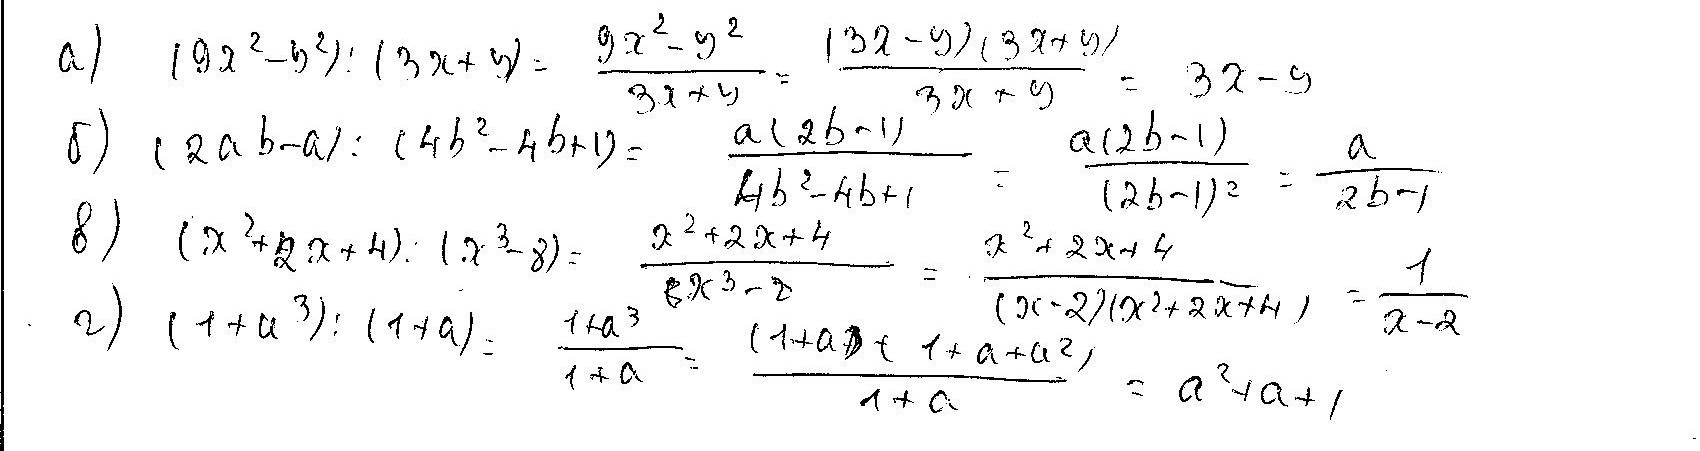 а) (9x²-y²):(3x+y)= \frac{9x²-y²}{3x+y} = \frac{(3x-y)(3x+y)}{3x+y} = 3x-y
б) (2ab-a):(4b²-4b+1)= \frac{a(2b-1)}{4b²-4b+1} = \frac{a(2b-1)}{(2b-1)²} = \frac{a}{2b-1}
в) (x²+2x+4):(x³-8)= \frac{x²+2x+4}{x³-2} = \frac{x²+2x+4}{(x-2)(x²+2x+4)} = \frac{1}{x-2}
г) (1+a³):(1+a)= \frac{1+a³}{1+a} = \frac{(1+a)(1+a+a²)}{1+a} = a²+a+1